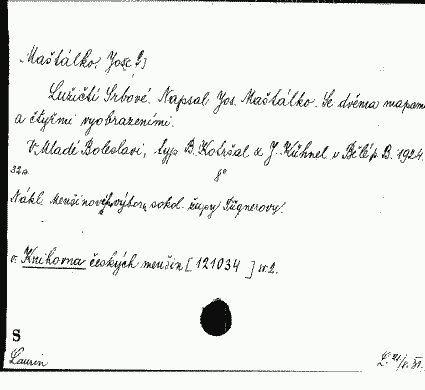 Maštálko, Jos[ef]
Lužičtí Srbové. Napsal Jos. Maštálko. Se dvěma mapami
a čtyřmi vyobrazeními.
V Mladé Boleslavi, typ B. Kotršal a J. Kühnel v Bělé p. B. 1924.
32 s. 8°
Nákl. Menšinového výboru sokol. župy Fügnerovy.
v. Knihovna českých menšin [121034] sv. 2.
S
Laurin